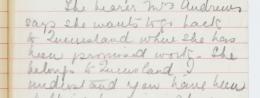 The bearer Mrs Andrews
says she wants to go back
to Queensland where she has
been promised work. She
belongs to Queensland I
understand and you have been